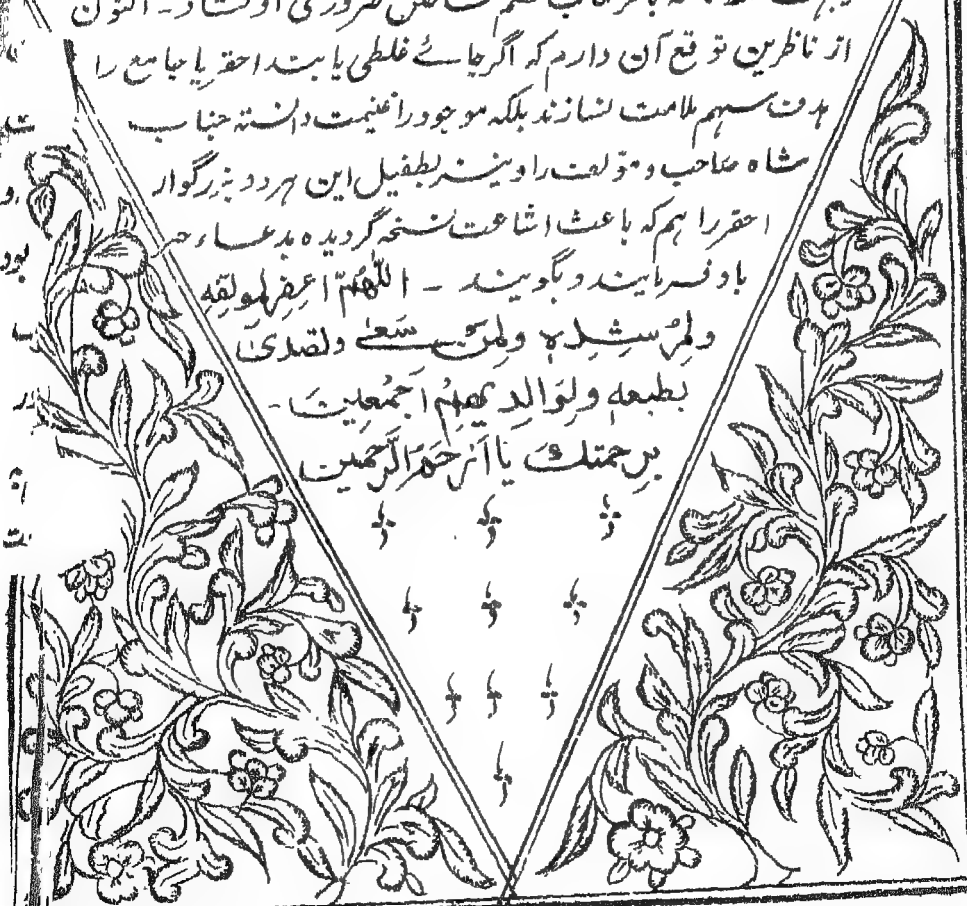 ضروری افتاد - اکنون
از ناظرین توقع آن دارم که اگر جائے غلطی یابند احقر یا جامع را
هدف سهم ملامت نسازند بلکه موجود را غنیمت دانسته جناب
شاه صاحب و مؤلف را و نیز بطفیل این هر دو بزرگوار
احقر را هم که باعث اشاعت نسخه گردیده بدعاء خیر
یاد فرمایند و بگویند - اللّٰهُمَّ اغفِر لمولفِه
ولِمُرْشِدِهٖ ولِمَنْ سَعٰے و تصدیٰ
بطبعهٖ ولِوَالِدِیْهِمْ اَجْمَعِینَ -
بِرحمتكَ یا اَرْحَمَ الرَّاحِمین